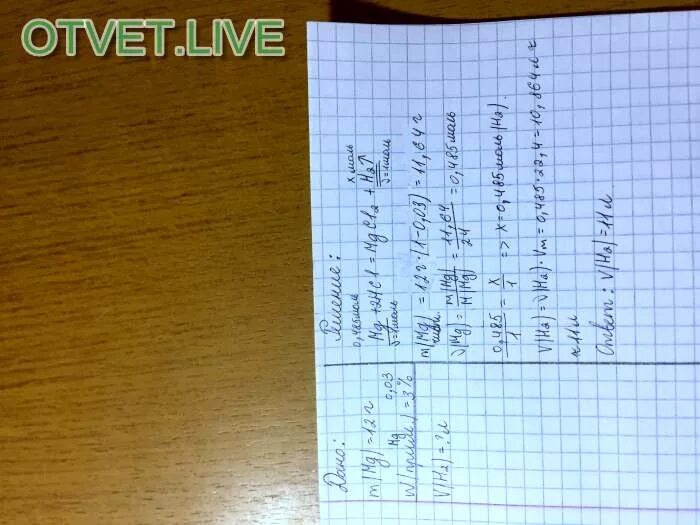 OTVET.LIVE
Дано:
m(Mg)=12г
0,03
W(примес.)=3%
Mg
V(H2)=?л
Решение:
0,485моль x моль
Mg+2HCl=MgCl2+H2↑
ν=1моль ν=1моль
m(Mg)=12г·(1-0,03)=11,64г
ν(Mg)=m(Mg)/M(Mg)=11,64/24=0,485моль
0,485/1=x/1 => x=0,485моль(H2).
V(H2)=ν(H2)·Vm=0,485·22,4=10,864л≈
≈11л
Ответ: V(H2)=11л